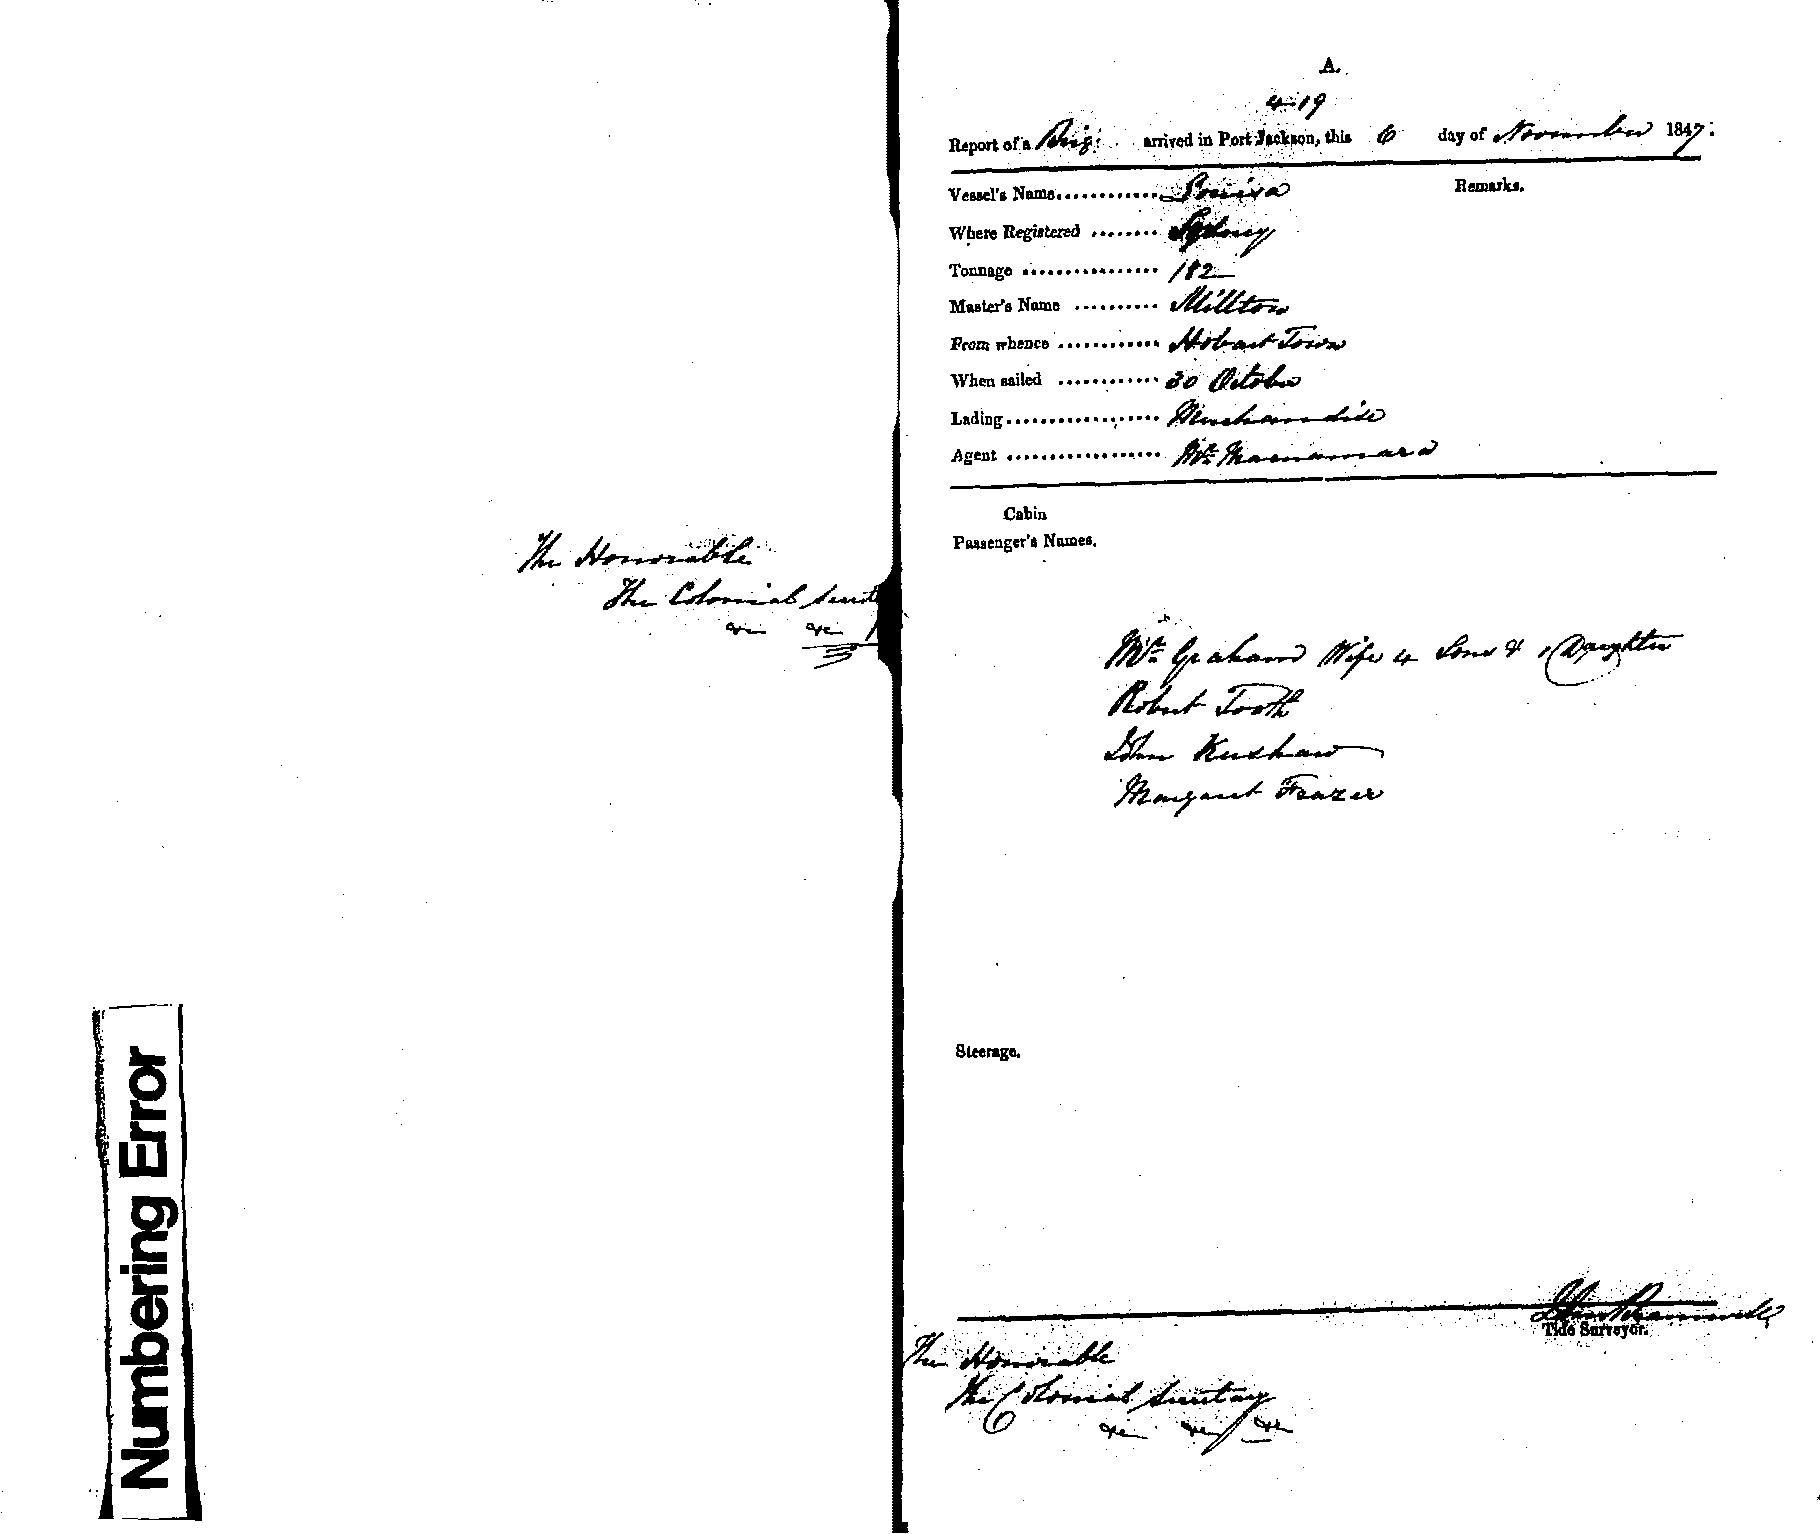 The Honorable
The Colonial Secret
&c &c
Numbering Error
A.
4-19
Report of a Brig. arrived in Port Jackson, this 6 day of November 1847.
Vessel's Name............ Louisa
Remarks.
Where Registered ........ Sydney
Tonnage ................ 182
Master's Name .......... Millton
From whence ............ Hobart Town
When sailed ............ 30 October
Lading.................. Merchandise
Agent .................. Mr. Macnamara
Cabin
Passenger's Names.
Mr. Graham Wife 4 Sons & 1 Daughter
Robert Tooth
John Kershaw
Margaret Frazer
Steerage.
John
Tide Surveyor.
The Honorable
The Colonial Secretary
&c &c &c